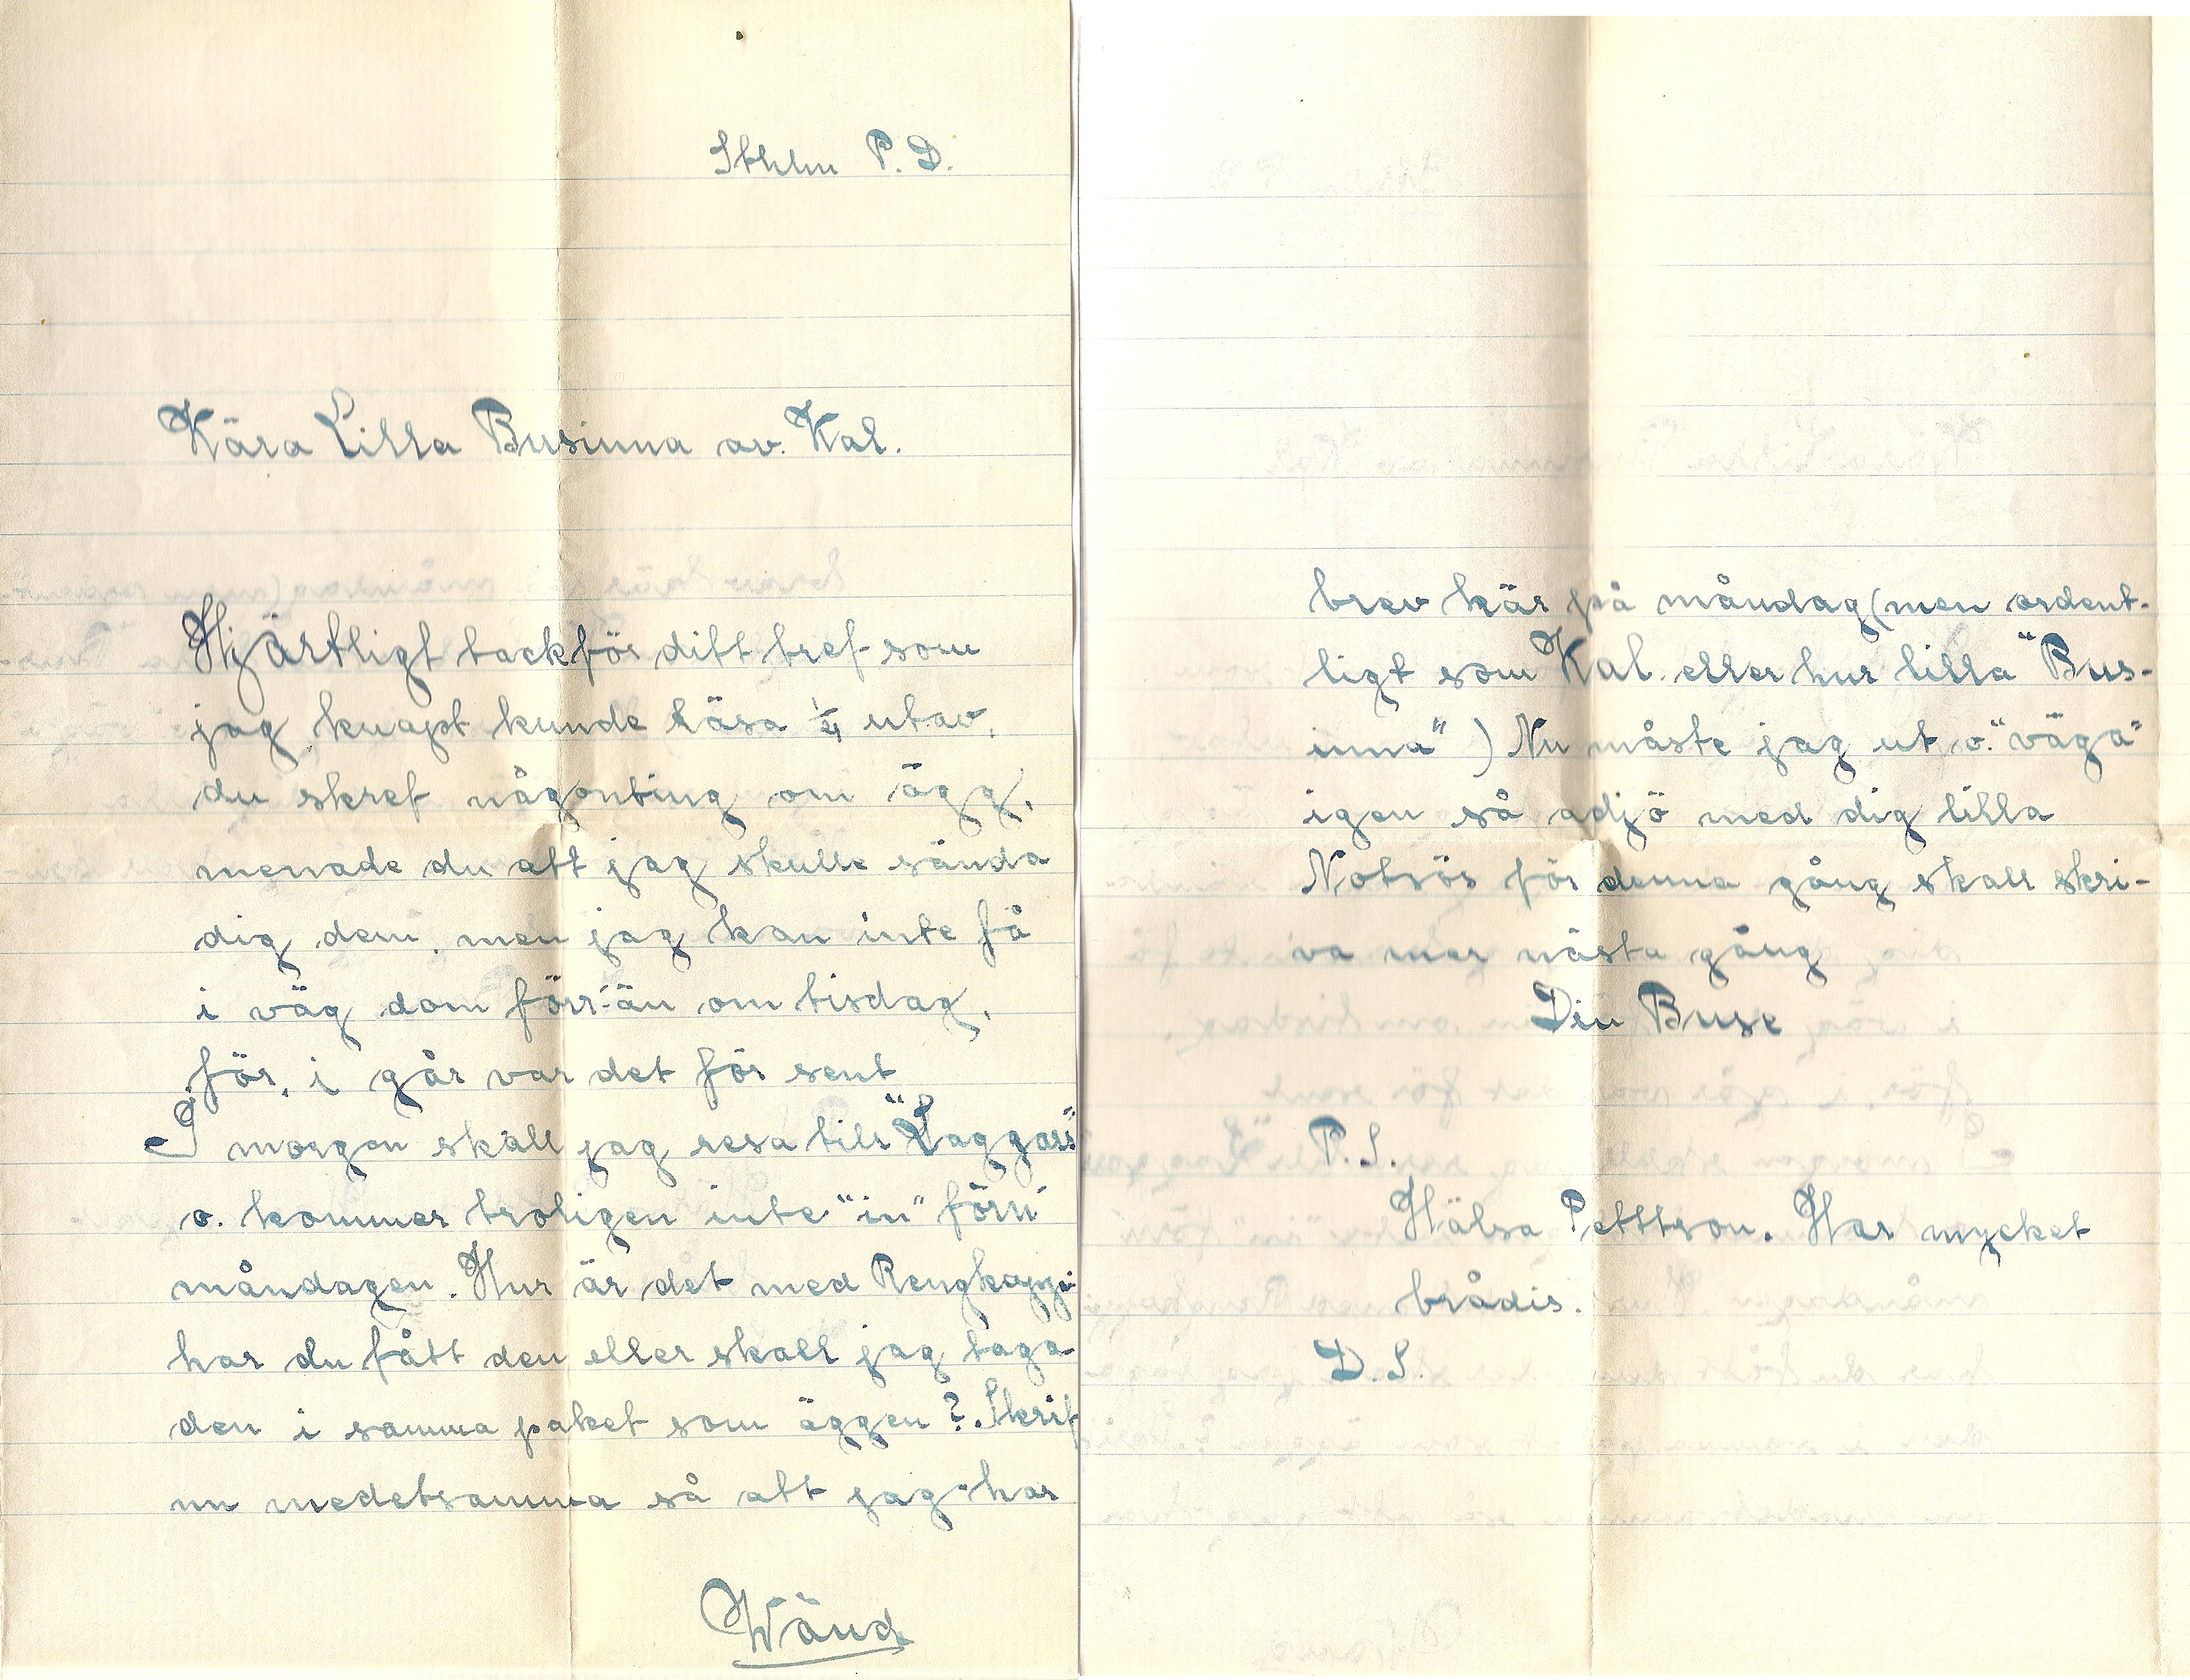 Sthlm P. D.
Kära Lilla Businna av. Kal.
Hjärtligt tack för ditt bref som
jag knapt kunde läsa 1/4 utav,
du skref någonting om ägg,
menade du att jag skulle sända
dig dem, men jag kan inte få
i väg dom förr-än om tisdag,
för, i går var det för sent
I morgon skall jag resa till "Laggars"
o. kommer troligen inte "in" förn
måndagen. Hur är det med
har du fått den eller skall jag taga
den i samma paket som äggen?. Skrif
nu medetsamma så att jag har
Wänd
brev här på måndag (men ordent-
ligt som Kal. eller hur lilla "Bus-
inna") Nu måste jag ut o. "väga"
igen så adjö med dig lilla
Notsös för denna gång skall skri-
va mer nästa gång
Din Buse
P. S.
Hälsa Petttson. Har mycket
brådis.
D. S.